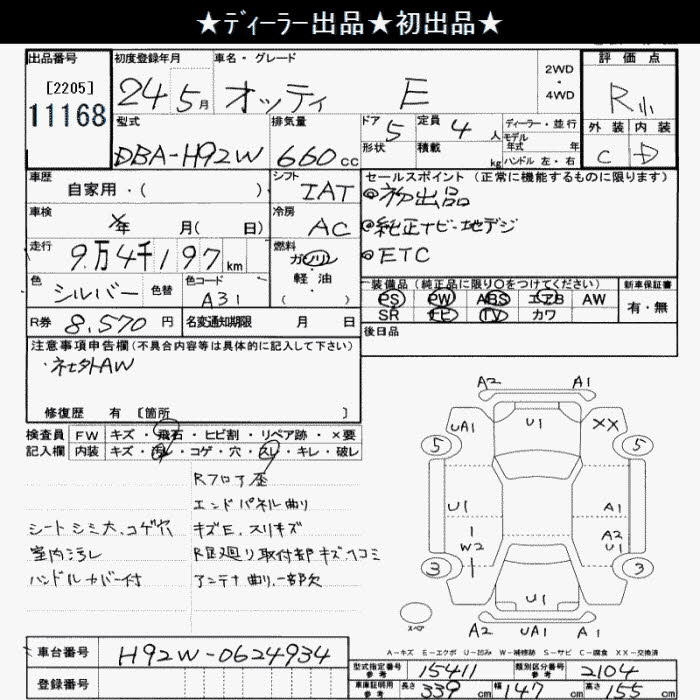 ★ディーラー出品★初出品★
出品番号 初度登録年月 車名・グレード 2WD・4WD 評価点
[2205] 24 5月 オッティ E R小
11168
型式 排気量 ドア 5 定員 4 人 ディーラー・並行 外装 内装
モデル年式 年
DBA-H92W 660cc 形状 積載 kg ハンドル 左・右 C D
車歴 シフト セールスポイント (正常に機能するものに限ります)
自家用・( ) IAT ◎初出品
車検 冷房 ◎純正ナビ・地デジ
×年 月( 日) AC ◎ETC
走行 燃料
9万4千197km ガソリン・軽油
色 色替 色コード 装備品 (純正品に限り○をつけてください) 新車保証書
シルバー A31 PS PW ABS エアB AW 有・無
SR ナビ TV カワ
R券 8,570円 名変通知期限 月 日 後日品
注意事項申告欄 (不具合内容等は具体的に記入して下さい)
・社外AW
修復歴 有 [箇所 ]
検査員 FW キズ・飛石・ヒビ割・リペア跡・×要
記入欄 内装 キズ・汚れ・コゲ・穴・スレ・キレ・破レ
Rフロア歪
エンドパネル曲り
シートシミ大、コゲ穴 キズE、スリキズ
室内汚レ R回廻り取付部キズ、ヘコミ
ハンドルカバー付 アンテナ曲り、一部欠
A2 A1
UA1 U1 XX
5 5
U1 A1
W2 A2
U1
3 3
U1
スペア A2 UA1 A1
A-キズ E-エクボ U-凹み W-補修跡 S-サビ C-腐食 XX-交換済
車台番号 H92W-0624934
登録番号
型式指定番号 参考 15411 類別区分番号 参考 2104
車庫証明用 参考 長さ 339 cm 幅 147 cm 高さ 155 cm